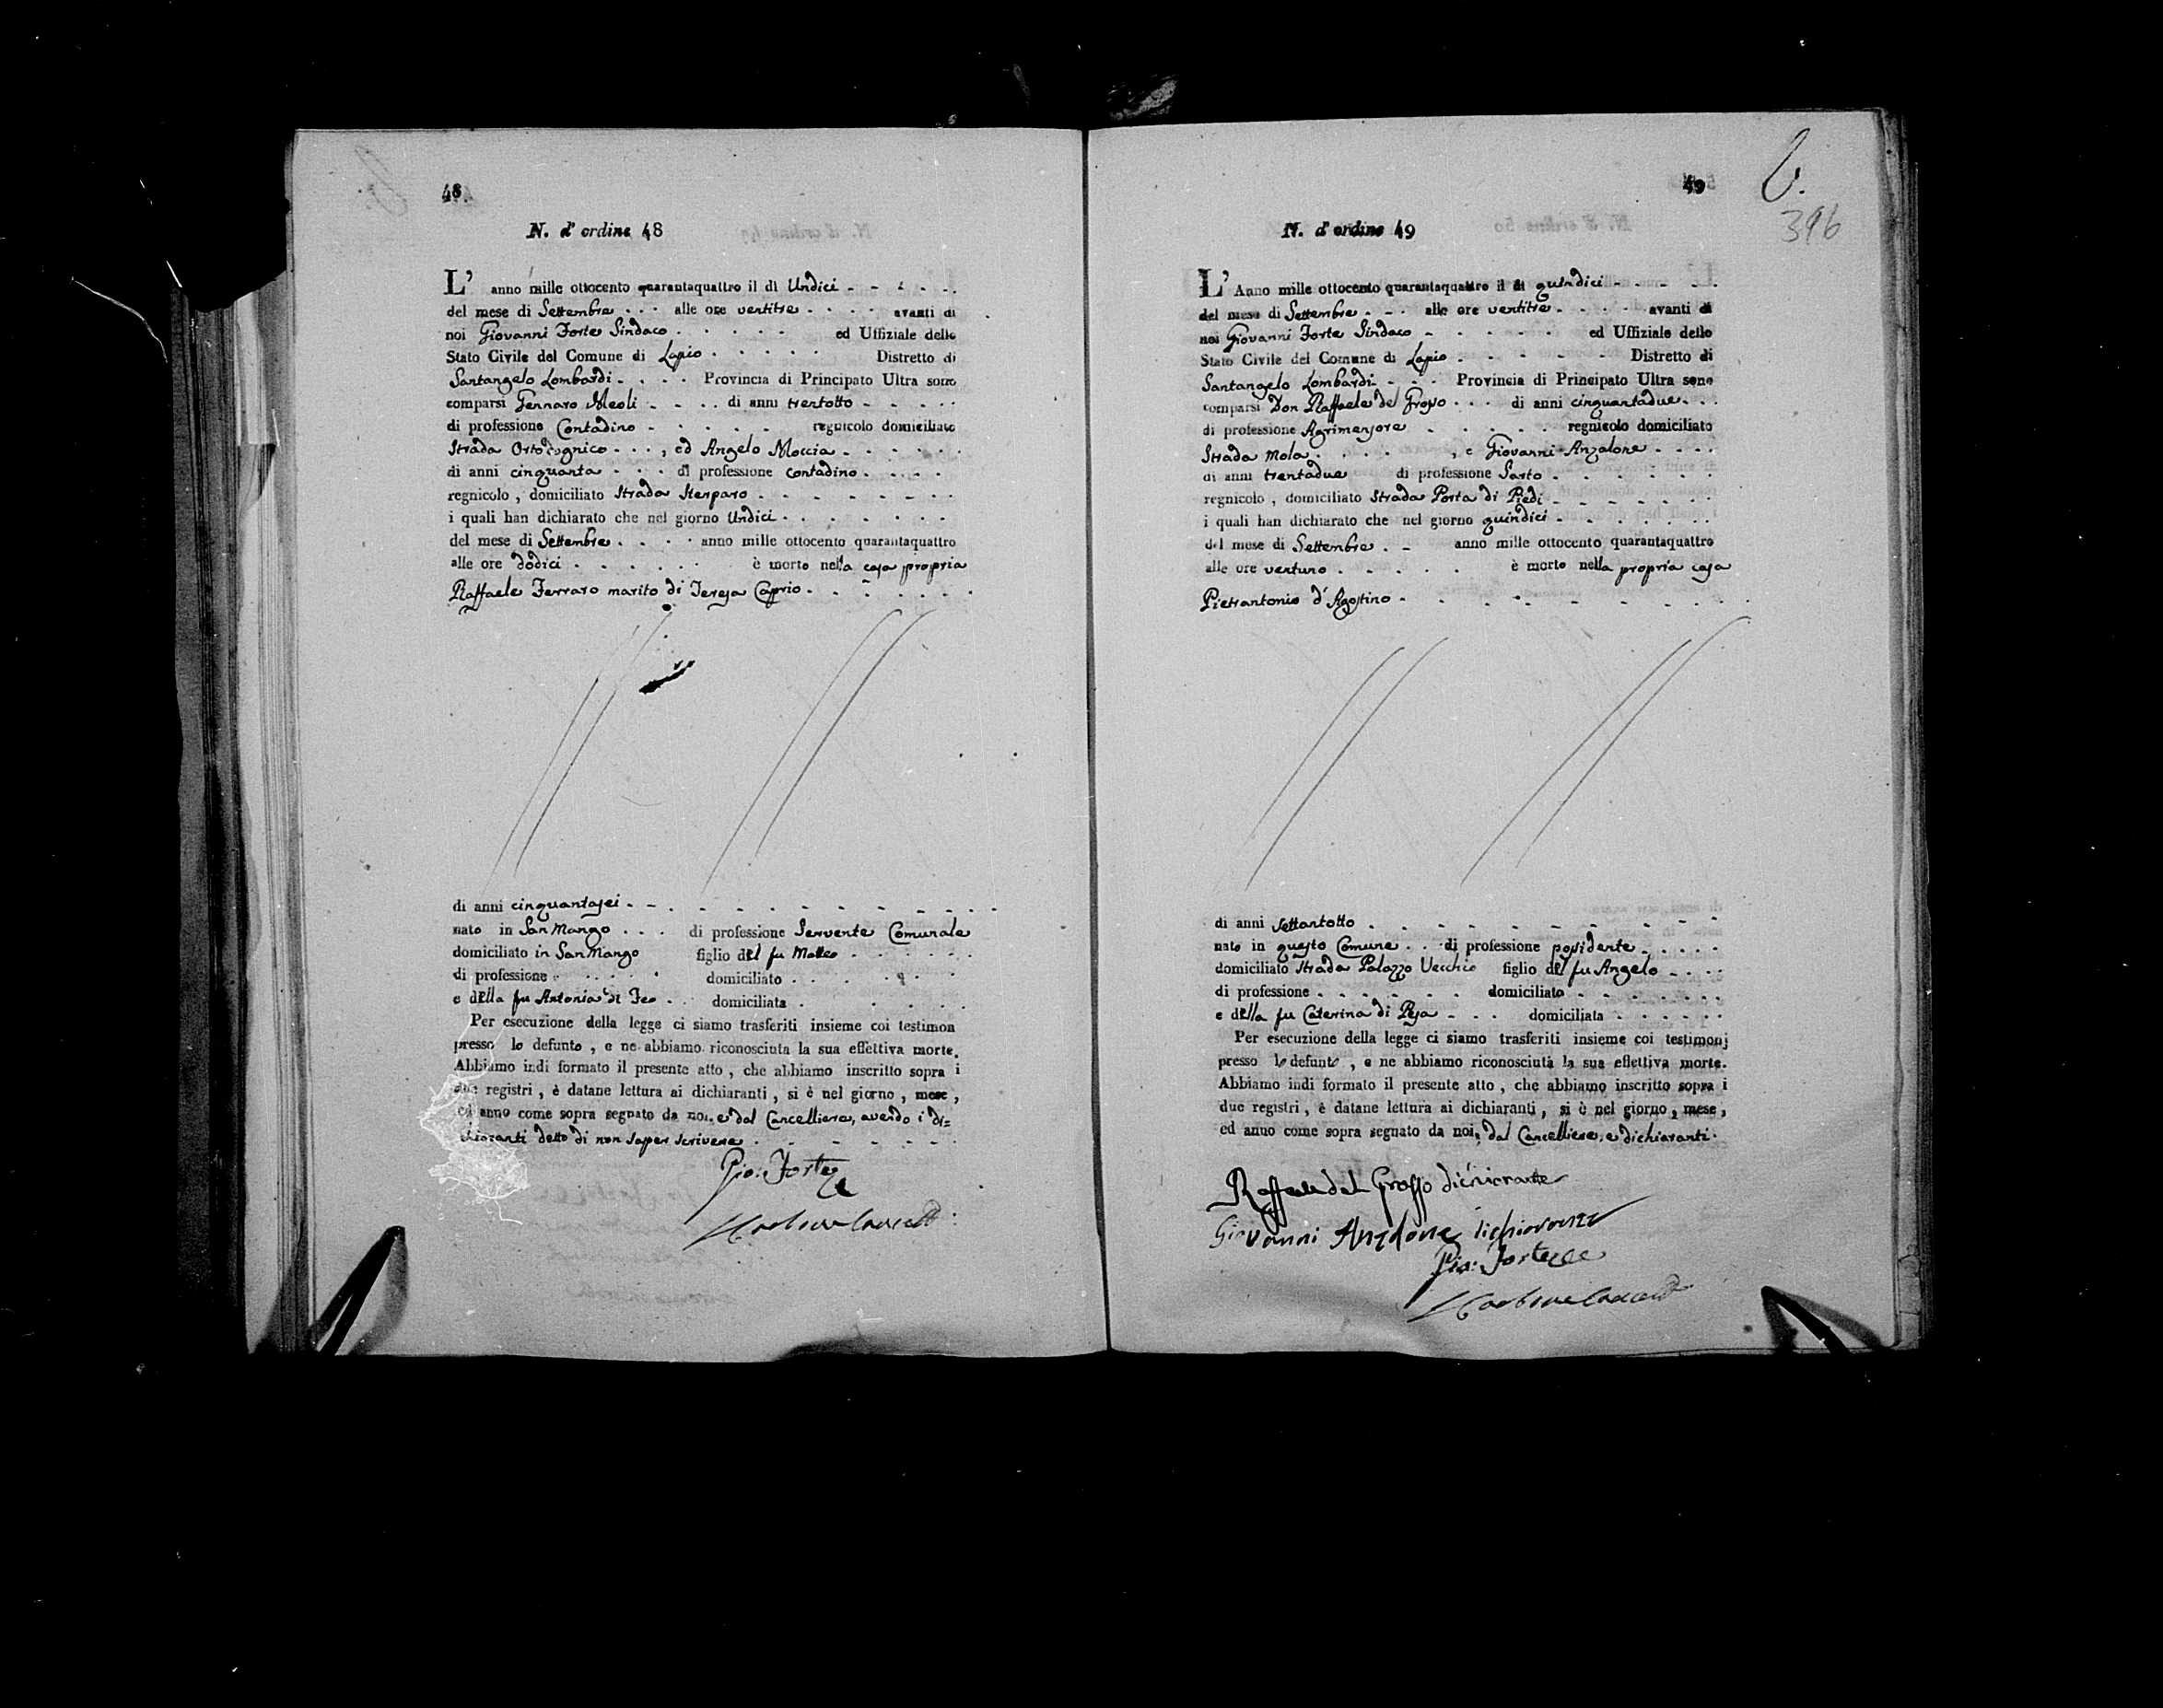 48.
N. d' ordine 48
L' anno mille ottocento quarantaquattro il dì Undici
del mese di Settembre alle ore ventitre avanti di
noi Giovanni Forte Sindaco ed Uffiziale dello
Stato Civile del Comune di Lapio Distretto di
Santangelo Lombardi Provincia di Principato Ultra sono
comparsi Gennaro Meoli di anni trentotto
di professione Contadino regnicolo domiciliato
Strada Ortodognico, ed Angelo Moccia
di anni cinquanta di professione contadino
regnicolo, domiciliato Strada Sterparo
i quali han dichiarato che nel giorno Undici
del mese di Settembre anno mille ottocento quarantaquattro
alle ore dodici è morto nella casa propria
Raffaele Ferraro marito di Teresa Caprio
di anni cinquantasei
nato in San Mango di professione Servente Comunale
domiciliato in San Mango figlio del fu Matteo
di professione domiciliato
e della fu Antonia di Feo domiciliata
Per esecuzione della legge ci siamo trasferiti insieme coi testimon
presso lo defunto, e ne abbiamo riconosciuta la sua effettiva morte.
Abbiamo indi formato il presente atto, che abbiamo inscritto sopra i
due registri, è datane lettura ai dichiaranti, si è nel giorno, mese,
ed anno come sopra segnato da noi, e dal Cancelliere, avendo i di=
chiaranti detto di non saper scrivere
Gio: Forte
49
396
N. d' ordine 49
L' Anno mille ottocento quarantaquattro il dì quindici
del mese di Settembre alle ore ventitre avanti di
noi Giovanni Forte Sindaco ed Uffiziale dello
Stato Civile del Comune di Lapio Distretto di
Santangelo Lombardi Provincia di Principato Ultra sono
comparsi Don Raffaele del Grosso di anni cinquantadue
di professione Agrimensore regnicolo domiciliato
Strada Mola, e Giovanni Anzalone
di anni trentadue di professione Sarto
regnicolo, domiciliato Strada Porta di Piedi
i quali han dichiarato che nel giorno quindici
del mese di Settembre anno mille ottocento quarantaquattro
alle ore ventuno è morto nella propria casa
Pietrantonio d'Agostino
di anni Settantotto
nato in questo Comune di professione possidente
domiciliato Strada Palazzo Vecchio figlio del fu Angelo
di professione domiciliato
e della fu Caterina di Pesa domiciliata
Per esecuzione della legge ci siamo trasferiti insieme coi testimonj
presso lo defunto, e ne abbiamo riconosciuta la sua effettiva morte.
Abbiamo indi formato il presente atto, che abbiamo inscritto sopra i
due registri, è datane lettura ai dichiaranti, si è nel giorno, mese,
ed anno come sopra segnato da noi, dal Cancelliere, e dichiaranti.
Raffaele del Grosso dichiarante
Giovanni Anzalone dichiarante
Gio: Forte